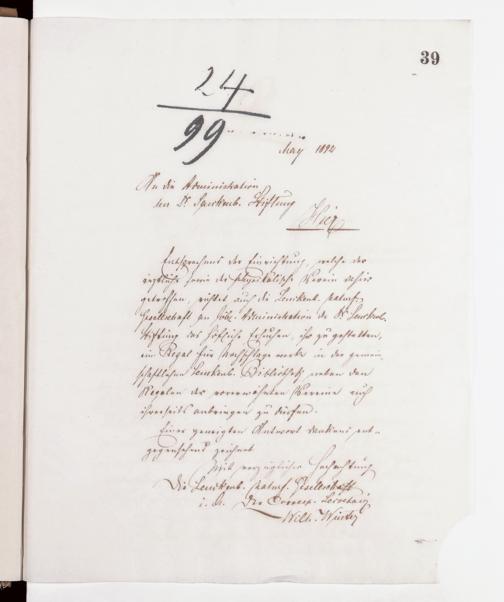 39
24
99
May 1894
An die Administration
der Dr Senckenb. Stiftung
Hier
Entsprechend der Einrichtung, welche der
ärztliche sowie der physikalische Verein dahier
getroffen, richtet auch die Senckenb. naturf.
Gesellschaft an löbl. Administration der Dr Senckenb.
Stiftung das höfliche Ersuchen, ihr zu gestatten,
ein Regal für Nachschlagewerke in der gemein-
schaftlichen Senckenb. Bibliothek neben den
Regalen der vorerwähnten Vereine auch
ihrerseits anbringen zu dürfen.
Einer geneigten Antwort dankend ent-
gegensehend zeichnet
Mit vorzüglicher Hochachtung
Die Senckenb. naturf. Gesellschaft
i. A. Der Corresp. Secretair
Wilh. Winter